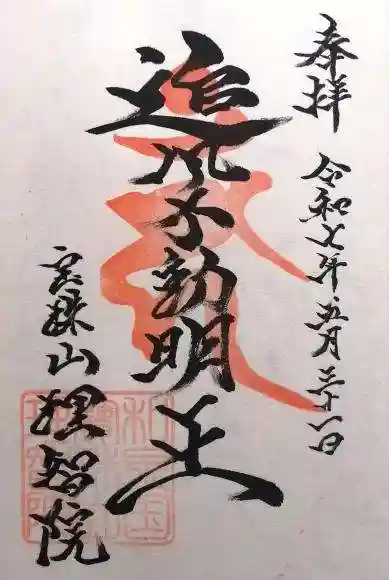 奉拝　令和七年五月三十一日
追風不動明王
宝珠山理智院